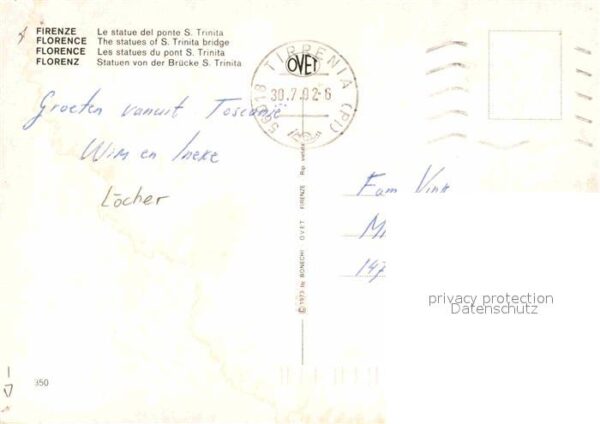 FIRENZE Le statue del ponte S. Trinita
FLORENCE The statues of S. Trinita bridge
FLORENCE Les statues du pont S. Trinita
FLORENZ Statuen von der Brücke S. Trinita
56018 TIRRENIA (PI)
OVET
30.7.92-6
Groeten vanuit Toscanië
Wim en Ineke
Löcher
Fam Vink
147
© 1973 by BONECHI OVET FIRENZE Rip. vietata
privacy protection
Datenschutz
350